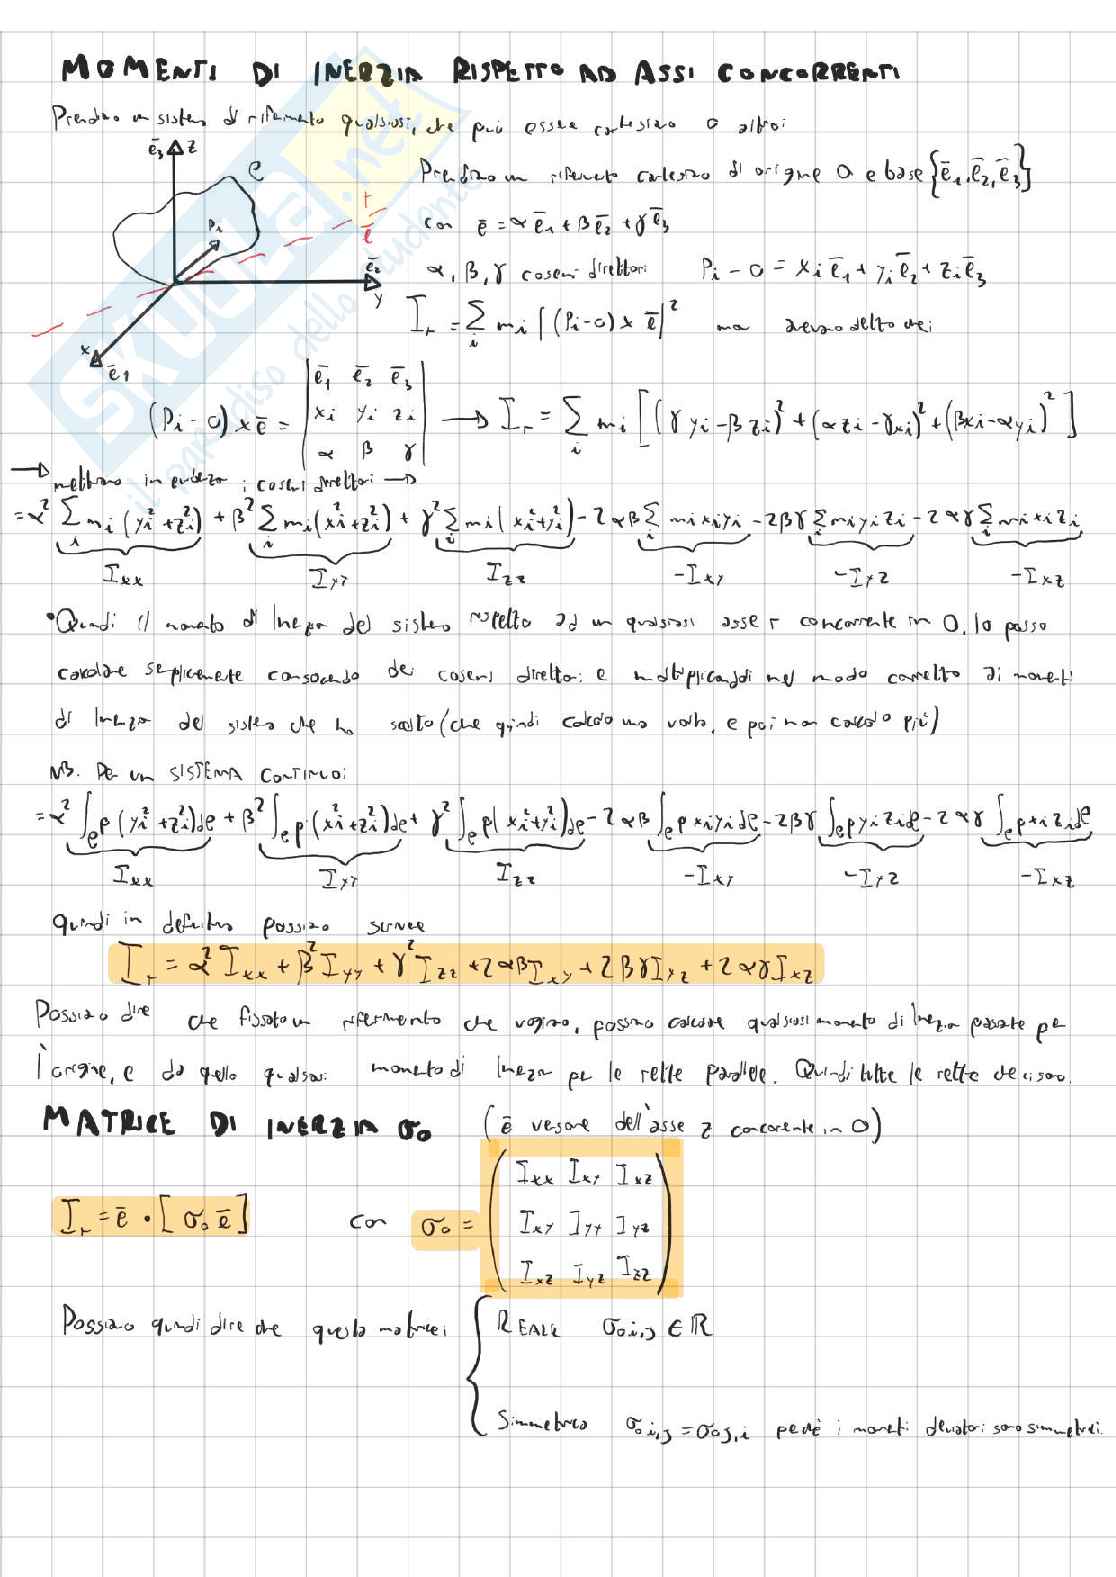 MOMENTI DI INERZIA RISPETTO AD ASSI CONCORRENTI
Prendiamo un sistema di riferimento qualsiasi, che può essere cartesiano o altro:
ē₃ z
C
Prendiamo un riferimento cartesiano di origine O e base {ē₁, ē₂, ē₃}
r
Pi
ē
con ē = αē₁ + βē₂ + γē₃
ē₂
y
α, β, γ coseni direttori Pi - O = xi ē₁ + yi ē₂ + zi ē₃
x
ē₁
I_r = Σ_i mi |(Pi-O) × ē|² ma avevo detto
(Pi - O) × ē = | ē₁ ē₂ ē₃ | xi yi zi | α β γ | → I_r = Σ_i mi [(γyi - βzi)² + (αzi - γxi)² + (βxi - αyi)²]
→ mettiamo in evidenza i coseni direttori →
= α² Σ_i mi (yi² + zi²) + β² Σ_i mi (xi² + zi²) + γ² Σ_i mi (xi² + yi²) - 2αβ Σ_i mi xi yi - 2βγ Σ_i mi yi zi - 2αγ Σ_i mi xi zi
Ixx Iyy Izz -Ixy -Iyz -Ixz
• Quindi il momento di Inerzia del sistema rispetto ad un qualsiasi asse r concorrente in O, lo posso
calcolare semplicemente conoscendo dei coseni direttori e moltiplicandoli nel modo corretto ai momenti
di Inerzia del sistema che ho scelto (che quindi calcolo una volta, e poi non calcolo più)
NB. Per un SISTEMA CONTINUO:
= α² ∫_C ρ (yi² + zi²) dC + β² ∫_C ρ (xi² + zi²) dC + γ² ∫_C ρ (xi² + yi²) dC - 2αβ ∫_C ρ xi yi dC - 2βγ ∫_C ρ yi zi dC - 2αγ ∫_C ρ xi zi dC
Ixx Iyy Izz -Ixy -Iyz -Ixz
quindi in definitiva possiamo scrivere
I_r = α² Ixx + β² Iyy + γ² Izz + 2αβ Ixy + 2βγ Iyz + 2αγ Ixz
Possiamo dire che fissato un riferimento che vogliamo, possiamo calcolare qualsiasi momento di Inerzia passante per
l'origine, e da quello qualsiasi momento di Inerzia per le rette parallele. Quindi tutte le rette che ci sono.
MATRICE DI INERZIA σo (ē versore dell'asse z concorrente in O)
I_r = ē · [σo ē] con σo = ( Ixx Ixy Ixz
Ixy Iyy Iyz
Ixz Iyz Izz )
Possiamo quindi dire che questa matrice: { REALE σo i,j ∈ ℝ
Simmetrica σo i,j = σo j,i perché i momenti deviatori sono simmetrici.
SKUOLA.net
il paradiso dello studente